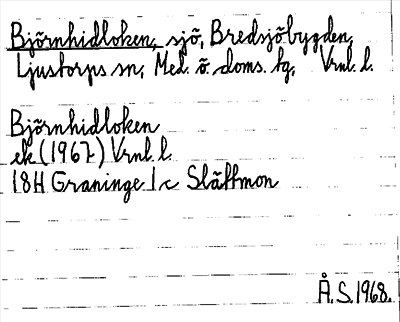 Björnhidloken, sjö, Bredsjöbygden,
Ljustorps sn, Med. ö. doms. tg, Vrnl. l.
Björnhidloken
ek (1967) Vrnl. l.
18H Graninge 1c Slättmon
Å.S.1968.